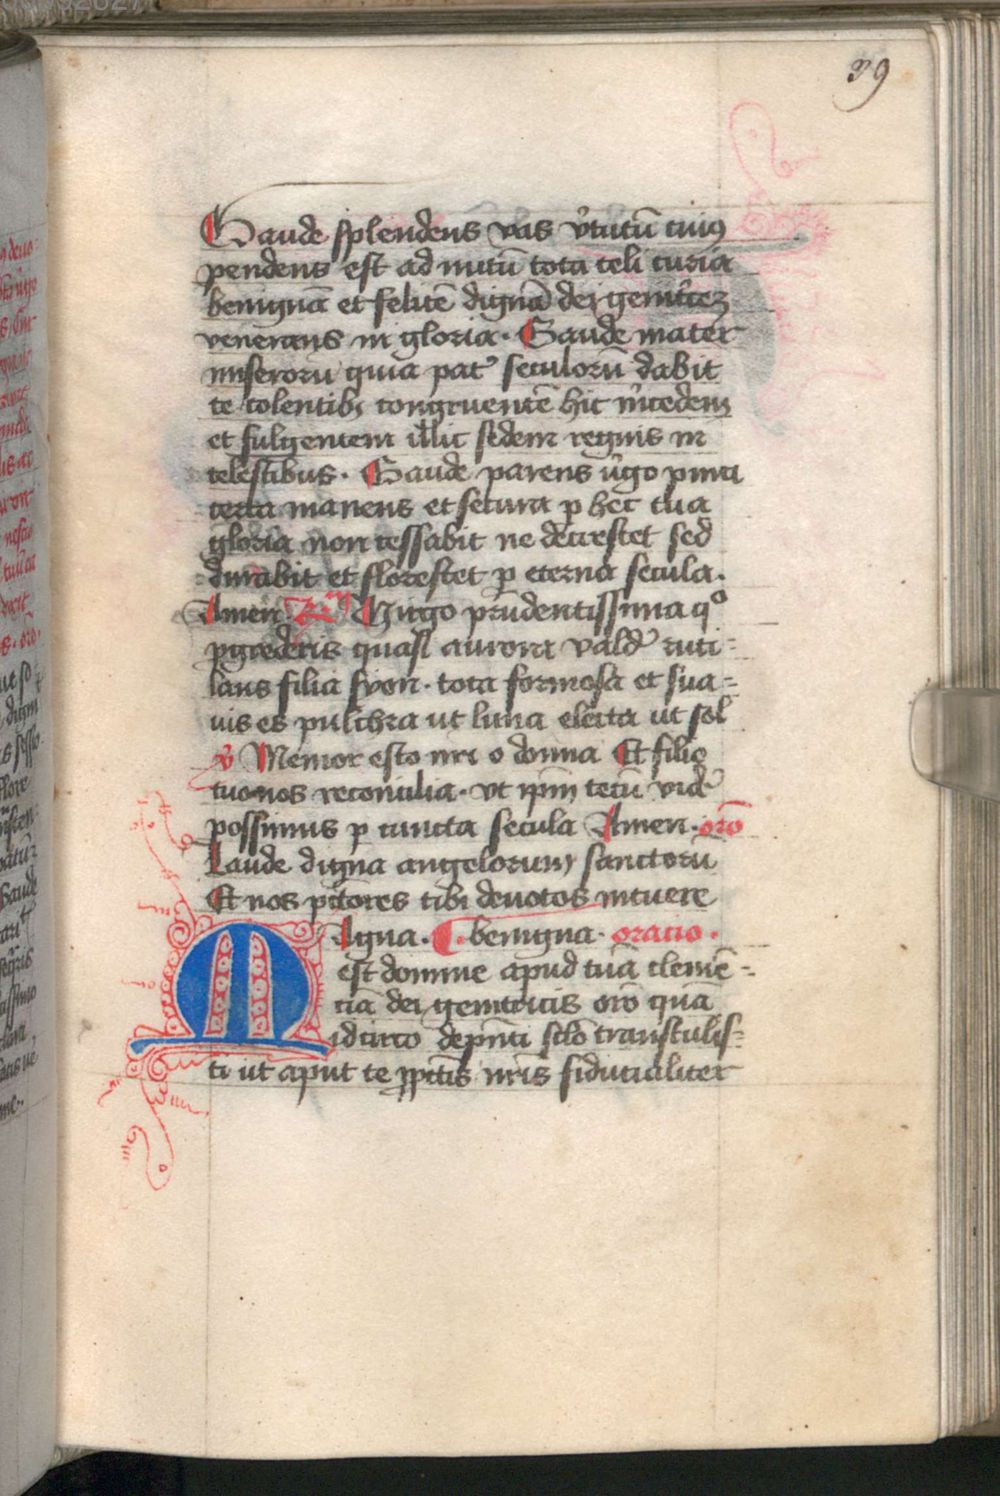 39
Gaude splendens vas v̓tutū cuiꝰ
pendens est ad nutū tota celi curia
benignā et felicē dignā dei genit̓cem
venerans in gloria. Gaude mater
miserorū quia pat̓ seculorū dabit
te colentibꝫ congruentē hic m̓cedem
et fulgentem illic sedem regnis in
celestibus. Gaude parens v̓go pura
certa manens et secura ꝑ hec tua
gloria non cessabit ne decrescet sed
durabit et florescet ꝑ eterna secula.
Amen. Virgo prudentissima qͦ
ꝓgrederis quasi aurora valde ruti-
lans filia syon. tota formosa et sua-
vis es pulchra ut luna electa ut sol
℣ Memor esto nri o domina Et filio
tuo nos reconcilia. vt ip̄m tecū vide̓
possimus ꝑ cuncta secula Amen. orō
Laude digna angelorum sanctorū
Et nos pctōres tibi devotos intuere
Agna. benigna. oracio.
Magna
est domine apud tuā clemē-
ciā dei genitricis orō quā
idcirco de pn̄ti sclo transtulis-
ti ut aput te ꝓ pctīs nr̄is fiducialiter